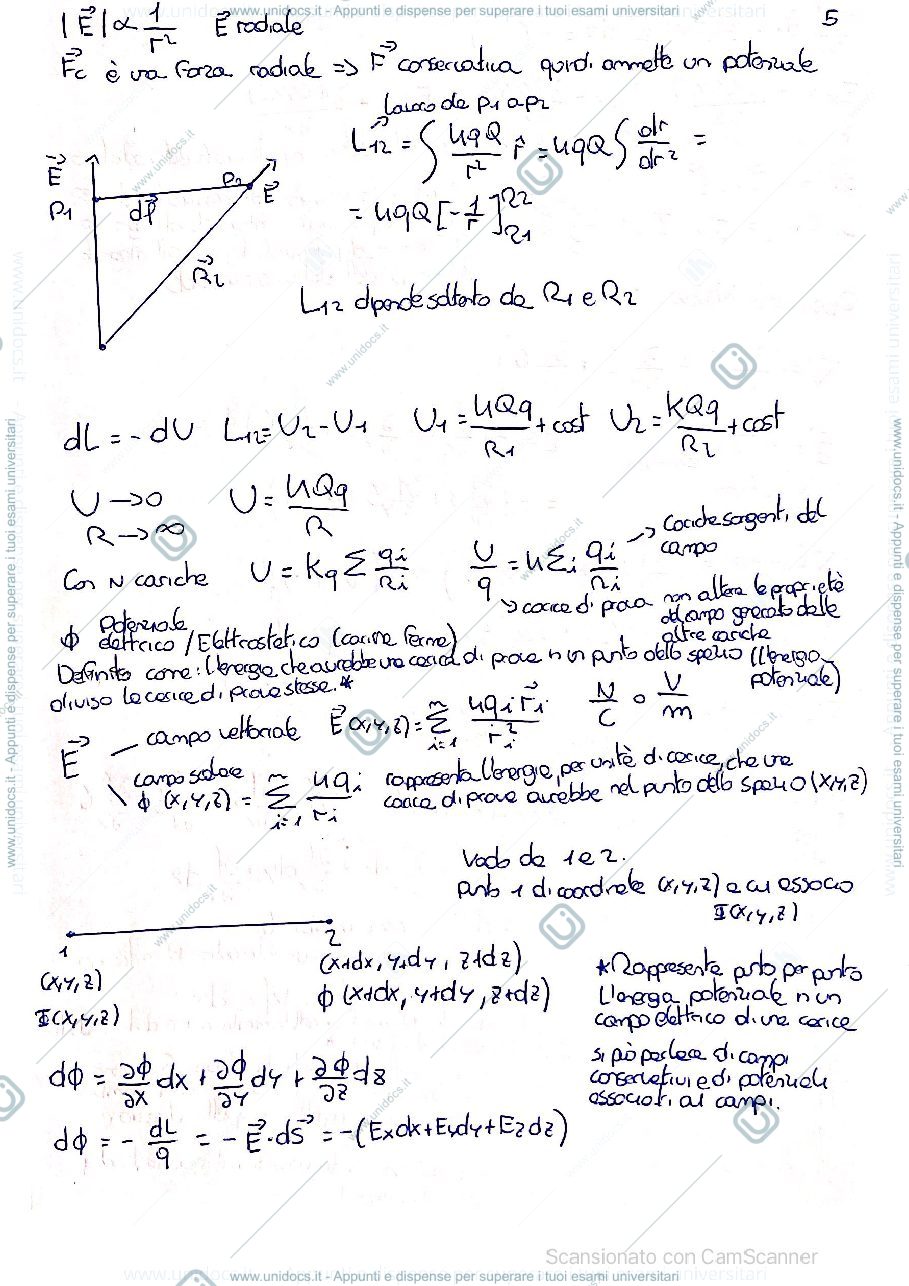 www.unidocs.it - Appunti e dispense per superare i tuoi esami universitari
5
|E⃗| ∝ 1/r² E⃗ radiale
F⃗c è una forza radiale => F⃗ conservativa quindi ammette un potenziale
lavoro da P1 a P2
L12 = ∫ kqQ/r² r̂ = kqQ ∫ dr/dr² =
= kqQ [-1/r]R2 R1
E⃗ P1 dl⃗ P2 E⃗
R⃗2
L12 dipende soltanto da R1 e R2
dL = - dU L12 = U2 - U1 U1 = kQq/R1 + cost U2 = KQq/R2 + cost
U → 0 U = kQq/R
R → ∞
Con N cariche U = Kq Σ qi/Ri U/q = k Σi qi/ri → cariche sorgenti del campo
↘ carica di prova non altera le proprietà del campo generato dalle altre cariche
ϕ Potenziale elettrico / Elettrostatico (carica ferme)
Definito come: l'energia che avrebbe una carica di prova in un punto dello spazio (l'energia potenziale)
diviso la carica di prova stessa. *
E⃗ campo vettoriale E⃗(x,y,z) = Σ i=1 n kqi r⃗i/ri² N/C o V/m
campo scalare
ϕ (x,y,z) = Σ i=1 n kqi/ri rappresenta l'energia, per unità di carica, che una
carica di prova avrebbe nel punto dello spazio (x,y,z)
Vado da 1 a 2.
punto 1 di coordinate (x,y,z) a cui associo
Φ(x,y,z)
1 2
(x,y,z) (x+dx, y+dy, z+dz)
Φ(x,y,z) ϕ (x+dx, y+dy, z+dz)
* Rappresenta punto per punto
l'energia potenziale in un
campo elettrico di una carica
si può parlare di campi
conservativi e di potenziali
associati ai campi.
dϕ = ∂ϕ/∂x dx + ∂ϕ/∂y dy + ∂ϕ/∂z dz
dϕ = - dL/q = - E⃗·dS⃗ = -(Exdx+Eydy+Ezdz)
Scansionato con CamScanner
www.unidocs.it - Appunti e dispense per superare i tuoi esami universitari